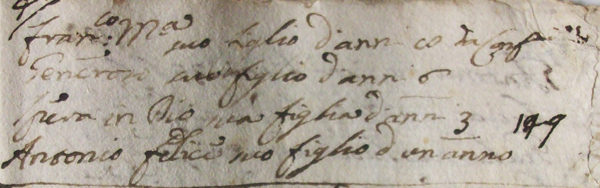 Fran.co M.a suo figlio d'anni co
Generoso suo figlio d'anni 6
Spera in Dio sua figlia d'anni 3 149
Antonio felice suo figlio d'un anno